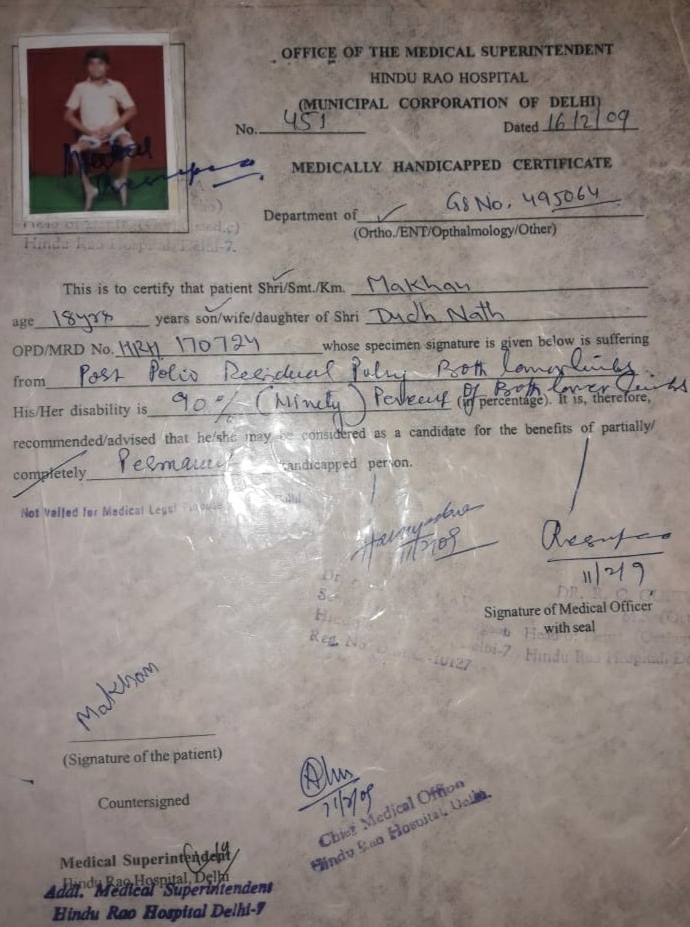 OFFICE OF THE MEDICAL SUPERINTENDENT
HINDU RAO HOSPITAL
(MUNICIPAL CORPORATION OF DELHI)
No. 451 Dated 16/2/09
MEDICALLY HANDICAPPED CERTIFICATE
Department of GS No. 495064
(Ortho./ENT/Opthalmology/Other)
Hindu Rao Hospital, Delhi-7.
This is to certify that patient Shri/Smt./Km. Makhan
age 18yrs years son/wife/daughter of Shri Dudh Nath
OPD/MRD No. HRH 170724 whose specimen signature is given below is suffering
from Post Polio Residual Both lower limbs.
His/Her disability is 90% (Ninety) Percent Of Both lower limbs (in percentage). It is, therefore,
recommended/advised that he/she may be considered as a candidate for the benefits of partially/
completely handicapped person.
Not Valied for Medical Legal
11/2/09
11/2/9
Signature of Medical Officer
with seal
Reg. No.
Hindu Rao Hospital,
Makhan
(Signature of the patient)
Countersigned
11/2/09
Chief Medical Office
Hindu Rao Hospital, Delhi.
Medical Superintendent
Hindu Rao Hospital, Delhi
Addl. Medical Superintendent
Hindu Rao Hospital Delhi-7